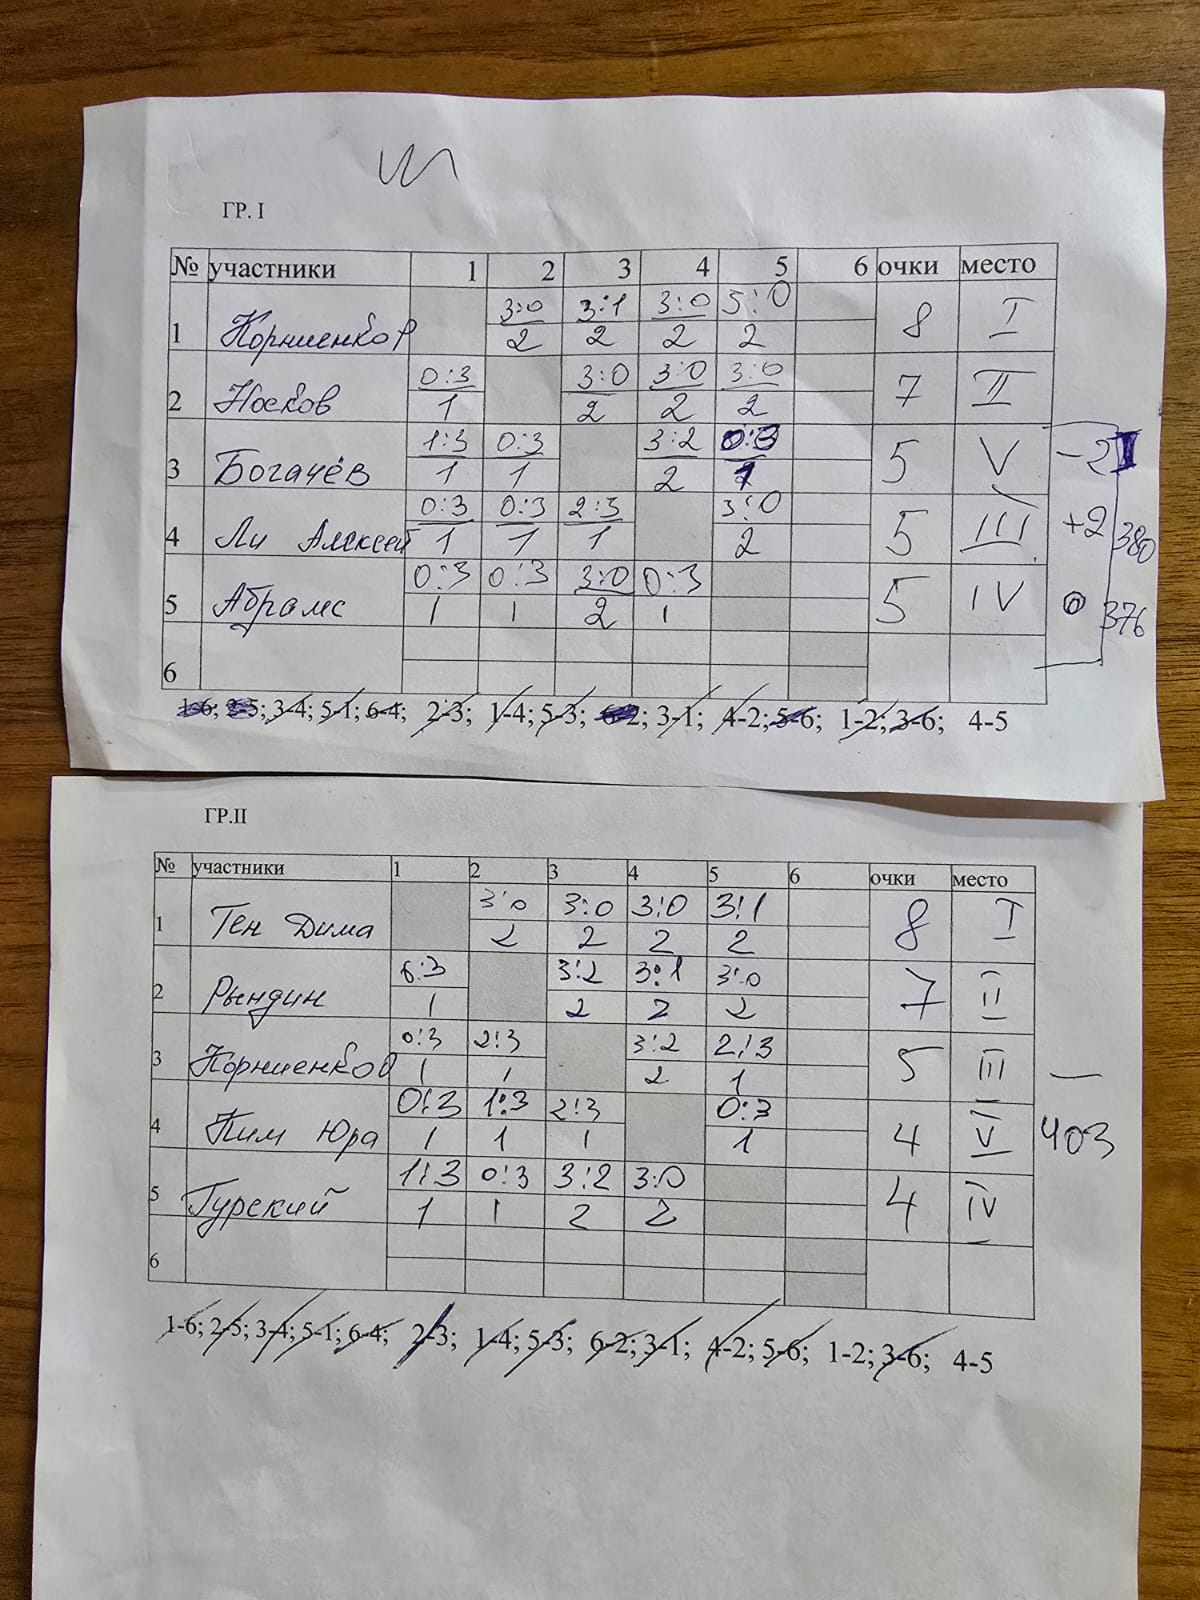 ГР. I
№ участники 1 2 3 4 5 6 очки место
3:0 3:1 3:0 5:0
1 Корниенков 2 2 2 2 8 I
0:3 3:0 3:0 3:0
2 Носков 1 2 2 2 7 II
1:3 0:3 3:2 0:3
3 Богачёв 1 1 2 1 5 V -2
0:3 0:3 2:3 3:0
4 Ли Алексей 1 1 1 2 5 III +2 380
0:3 0:3 3:0 0:3
5 Абрамс 1 1 2 1 5 IV 0 376
6
1-6; 2-5; 3-4; 5-1; 6-4; 2-3; 1-4; 5-3; 6-2; 3-1; 4-2; 5-6; 1-2; 3-6; 4-5
ГР.II
№ участники 1 2 3 4 5 6 очки место
3:0 3:0 3:0 3:1
1 Тен Дима 2 2 2 2 8 I
0:3 3:2 3:1 3:0
2 Рындин 1 2 2 2 7 II
0:3 2:3 3:2 2:3
3 Корниенков 1 1 2 1 5 III —
0:3 1:3 2:3 0:3
4 Ким Юра 1 1 1 1 4 V 403
1:3 0:3 3:2 3:0
5 Гурский 1 1 2 2 4 IV
6
1-6; 2-5; 3-4; 5-1; 6-4; 2-3; 1-4; 5-3; 6-2; 3-1; 4-2; 5-6; 1-2; 3-6; 4-5